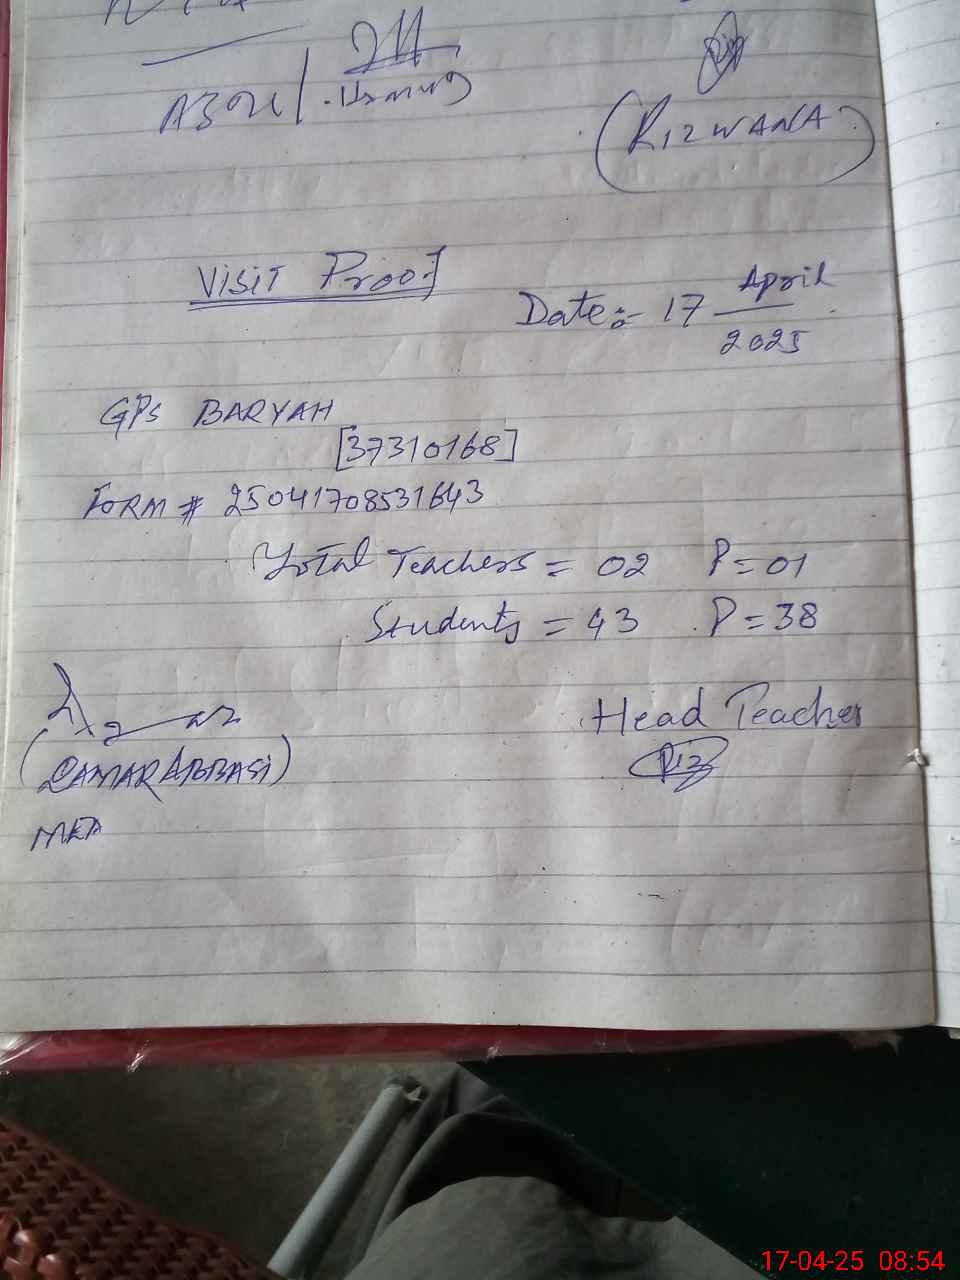 (RIZWANA)
Visit Proof
Date:- 17 April 2025
GPS BARYAH
[37310168]
FORM # 25041708531643
Total Teachers = 02 P = 01
Students = 43 P = 38
Head Teacher
(QAMAR ABBASI)
Riz
MEA
17-04-25 08:54